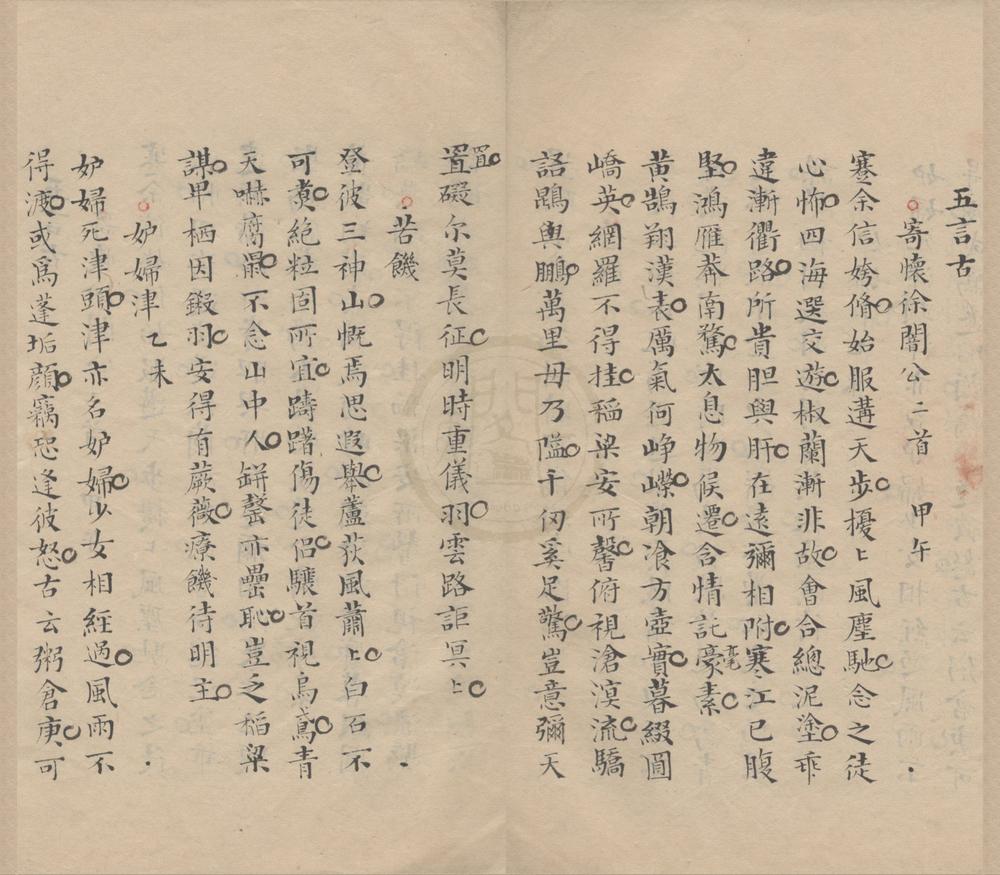 五言古
寄懷徐闇公二首 甲午
蹇余信姱脩始服遘天步擾〻風塵馳念之徒
心怖四海選交遊椒蘭漸非故會合總泥塗乖
違漸衢路所貴胆與肝在遠彌相附寒江已腹
堅鴻雁莽南驚太息物候遷含情託豪素
毫
黃鵠翔漢表厲氣何崢嶸朝飡方壺實暮綴圓
嶠英網羅不得挂稻粱安所馨俯視滄溟流驕
語鵾與鵬萬里毋乃隘千仞奚足驚豈意彌天
罝礙尔莫長征明時重儀羽雲路詎冥〻
罝
苦饑
登彼三神山慨焉思遐舉蘆荻風蕭〻白石不
可煑絕粒固所宜躊躇傷徒侶驤首視烏鳶青
天嚇腐鼠不念山中人缾罄亦罍恥豈乏稻粱
謀卑栖因鎩羽安得有蕨薇療饑待明主
妒婦津 乙未
妒婦死津頭津亦名妒婦少女相經過風雨不
得渡或為蓬垢顏竊恐逢彼怒古云粥倉庚可